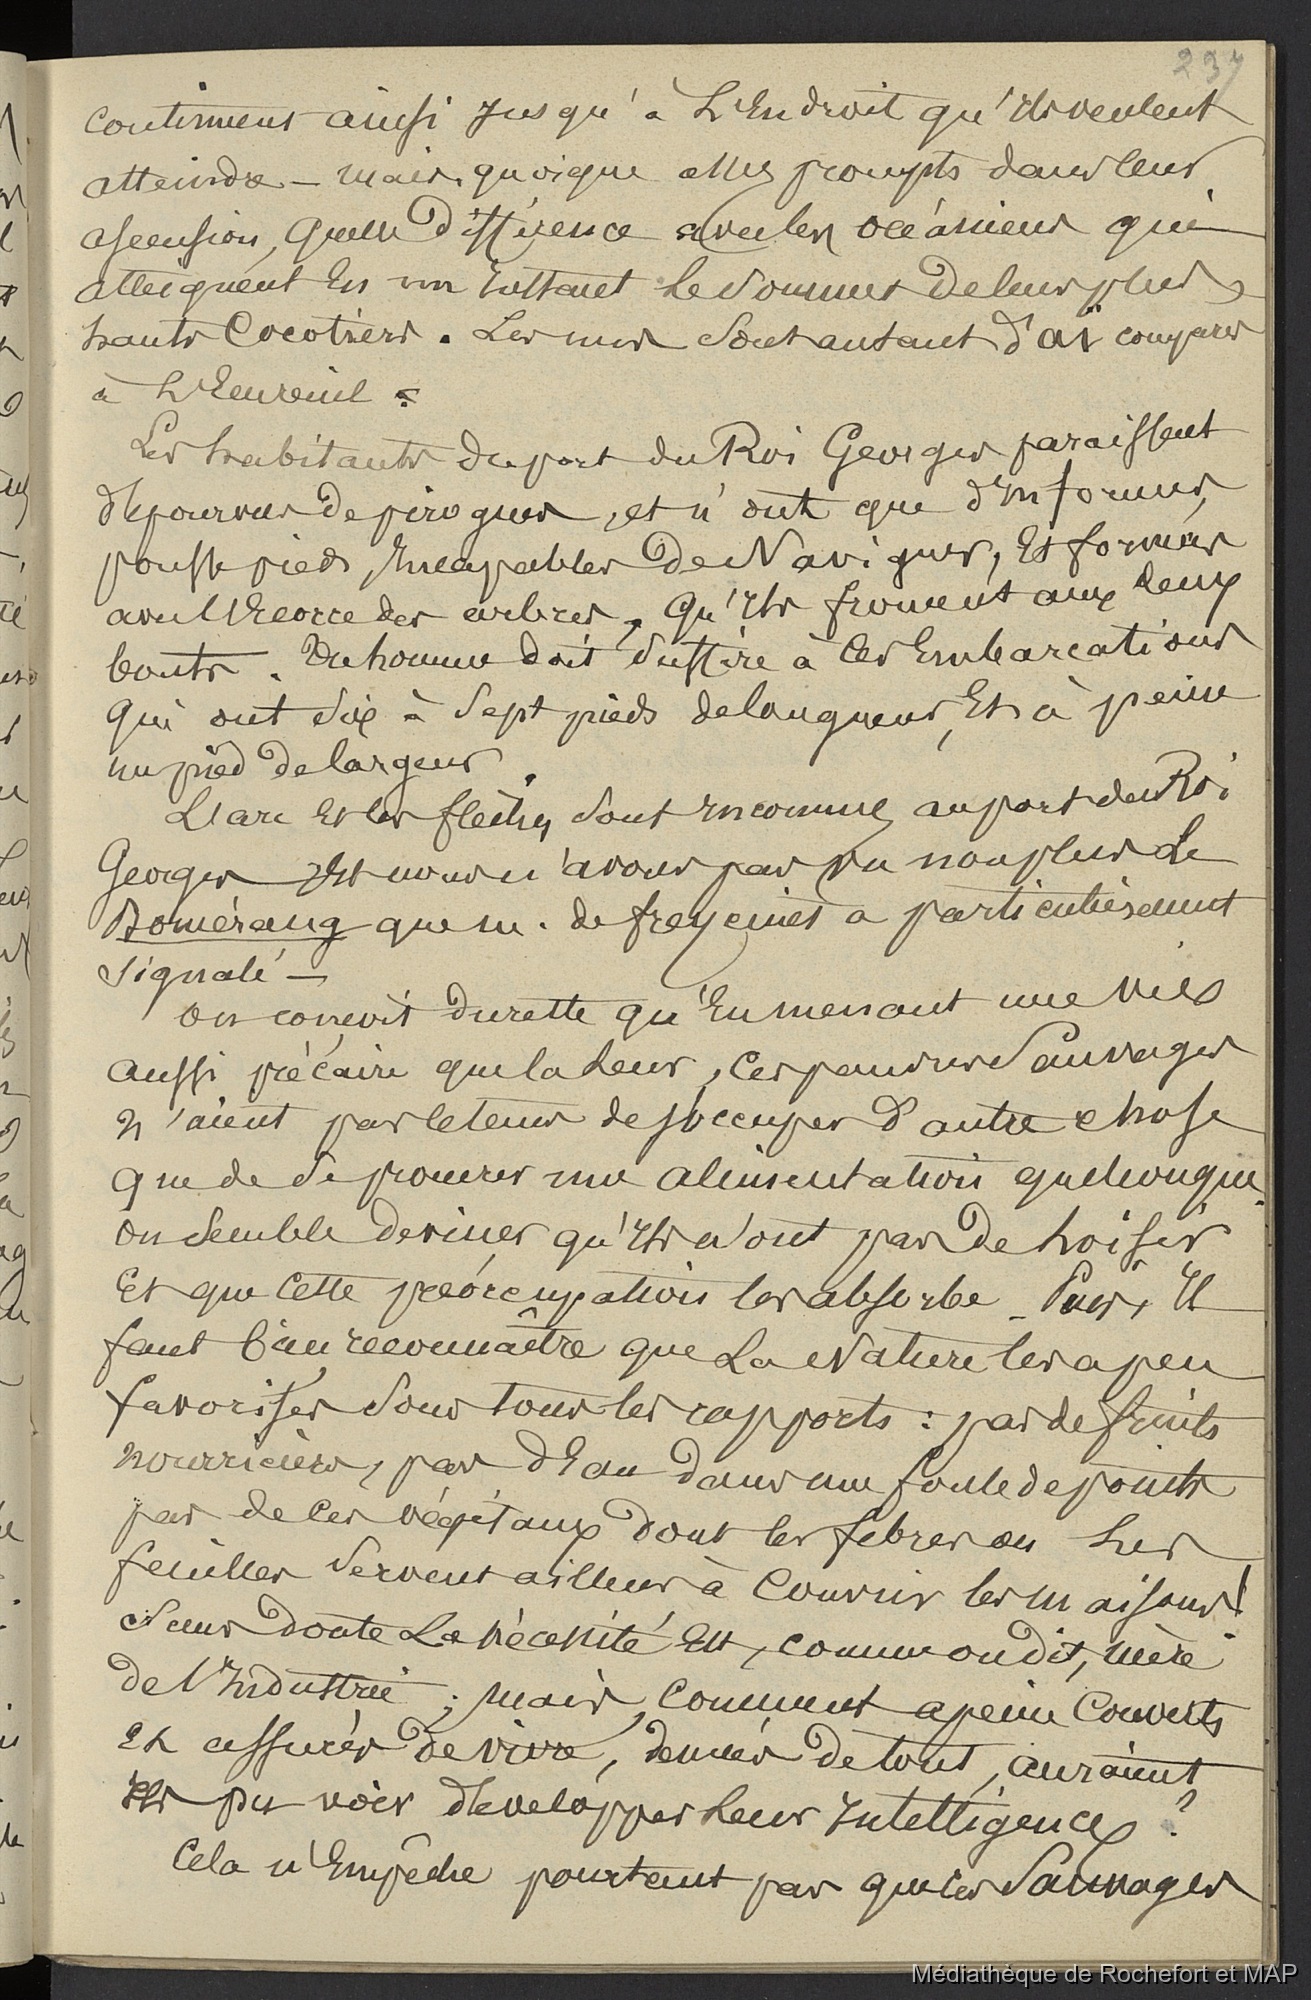 237
continuent ainsi jusqu'à l'Endroit qu'ils veulent
atteindre – mais, quoique assez prompts dans leur
ascension, quelle différence avec les océaniens qui
atteignent En un Instant le sommet de leurs plus
hauts Cocotiers. Les uns sont autant d'aï comparés
à l'Ecureuil.
Les habitants du port du Roi Georges paraissent
dépourvus de pirogues, et n'ont que d'informes
pousse pieds, Incapables de Naviguer, Et formés
avec l'Ecorce des arbres, qu'ils froncent aux deux
bouts. Un homme doit suffire à ces Embarcations
qui ont six à sept pieds de longueur, Et à peine
un pied de largeur.
L'arc Et les flèches sont inconnus au port du Roi
Georges Et nous n'avons pas vu non plus le
Bomérang que m. de freycinet a particulièrement
signalé –
on conçoit du reste qu'En menant une vie
aussi précaire que la leur, ces pauvres Sauvages
n'aient pas le tems de s'occuper d'autre chose
que de se procurer une alimentation quelconque.
on semble deviner qu'ils n'ont pas de loisir
Et que cette préoccupation les absorbe – Puis, Il
faut bien reconnaître que La Nature les a peu
favorisés sous tous les rapports : pas de fruits
nourriciers, pas d'Eau dans une foule de points
pas de ces végétaux dont les fibres ou les
feuilles servent ailleurs à Couvrir les maisons!
Sans doute La nécessité Est, comme on dit, mère
de l'Industrie ; mais, comment à peine Couverts
Et assurés de vivre, dénués de tout, auraient
Ils pu voir développer leur Intelligence ?
Cela n'Empêche pourtant pas que les Sauvages
Médiathèque de Rochefort et MAP